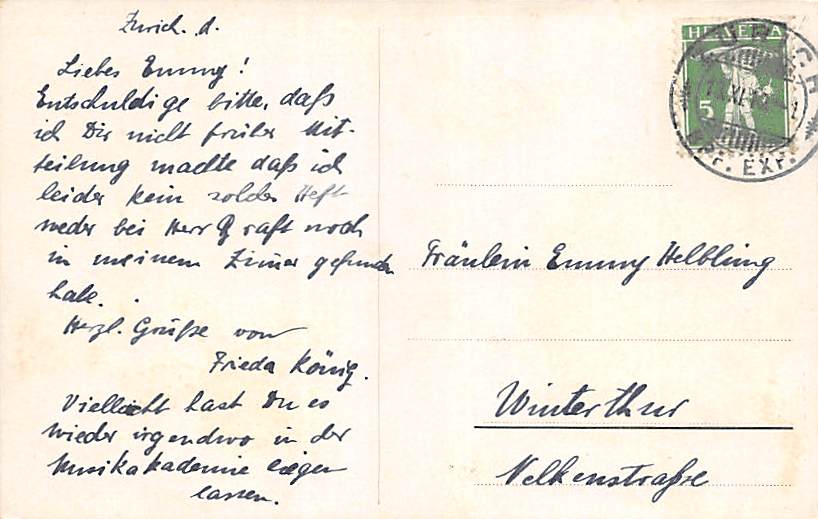 Zürich. d.
Liebes Emmy!
Entschuldige bitte, daß
ich Dir nicht früher Mit-
teilung machte daß ich
leider kein solches Heft
weder bei Herr Graft noch
in meinem Zimmer gefunden
habe.
Herzl. Grüße von
Frieda König.
Vielleicht hast Du es
wieder irgendwo in der
Musikakademie liegen
lassen.
HELVETIA
5
EXP.
Fräulein Emmy Helbling
Winterthur
Nelkenstraße